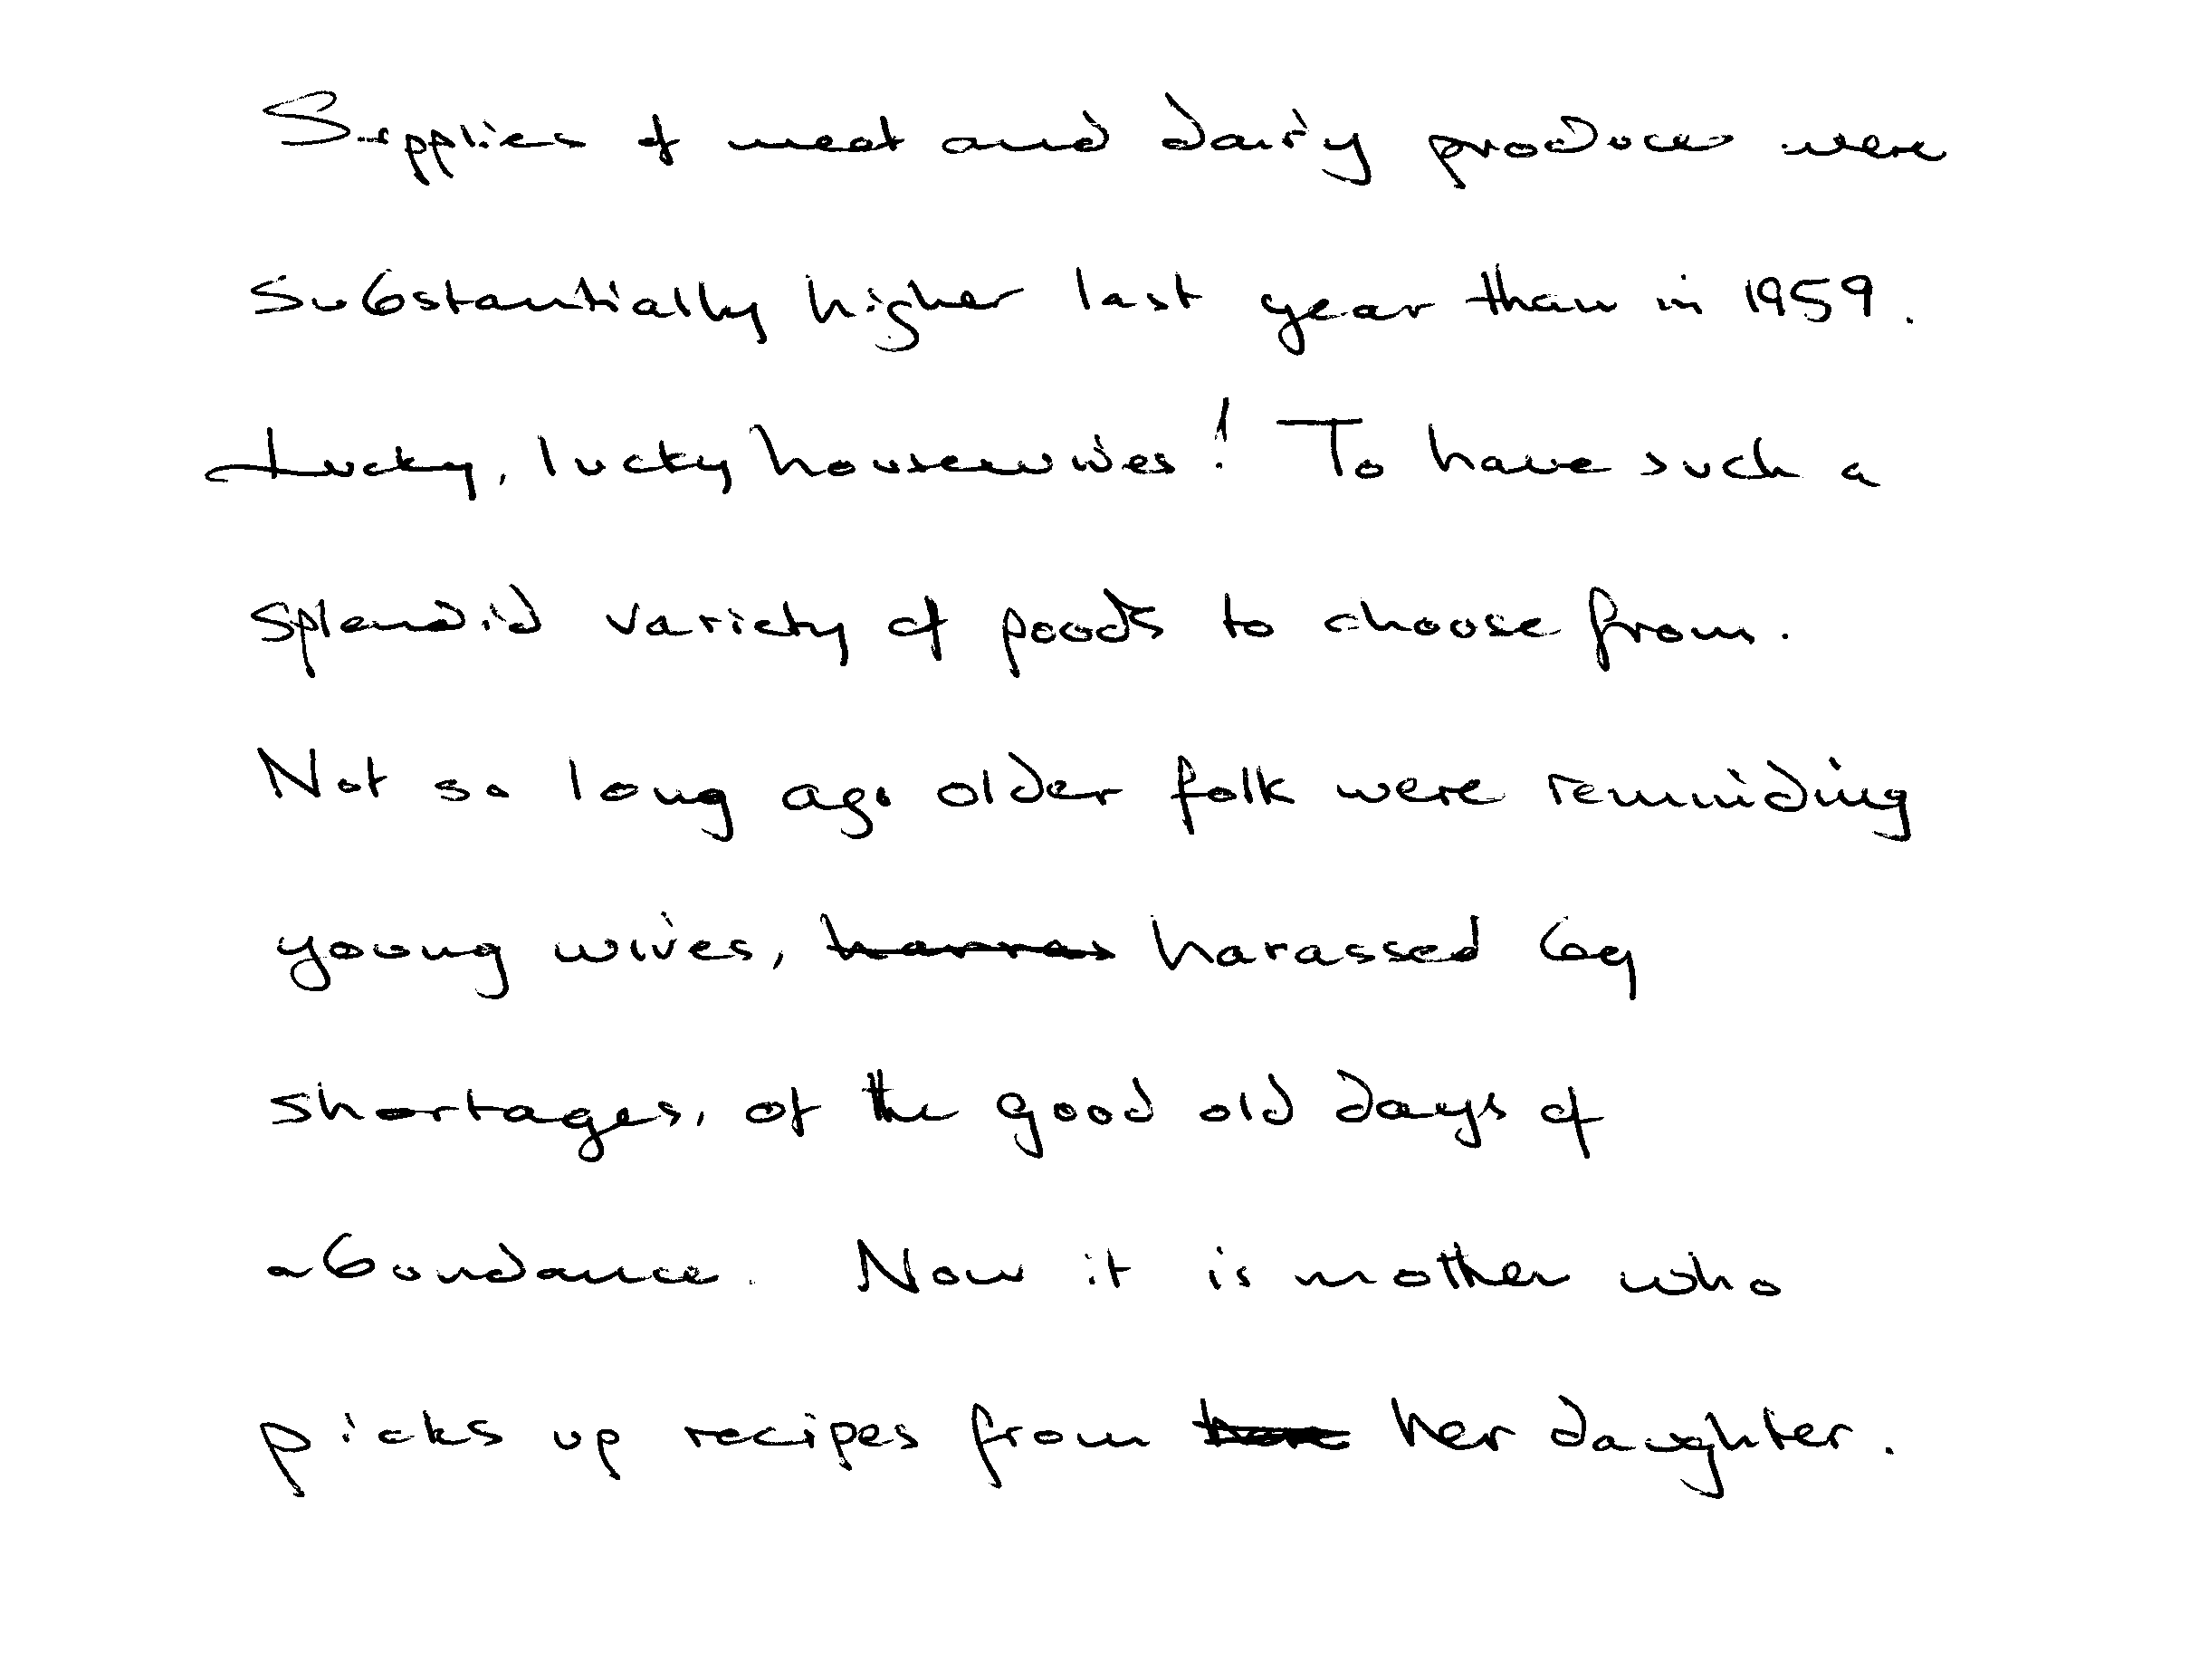 Supplies of meat and dairy produce were
substantially higher last year than in 1959.
Lucky, lucky housewives! To have such a
splendid variety of poods to choose from.
Not so long ago older folk were reminding
young wives, harassed by
shortages, of the good old days of
abundance. Now it is mother who
picks up recipes from her daughter.